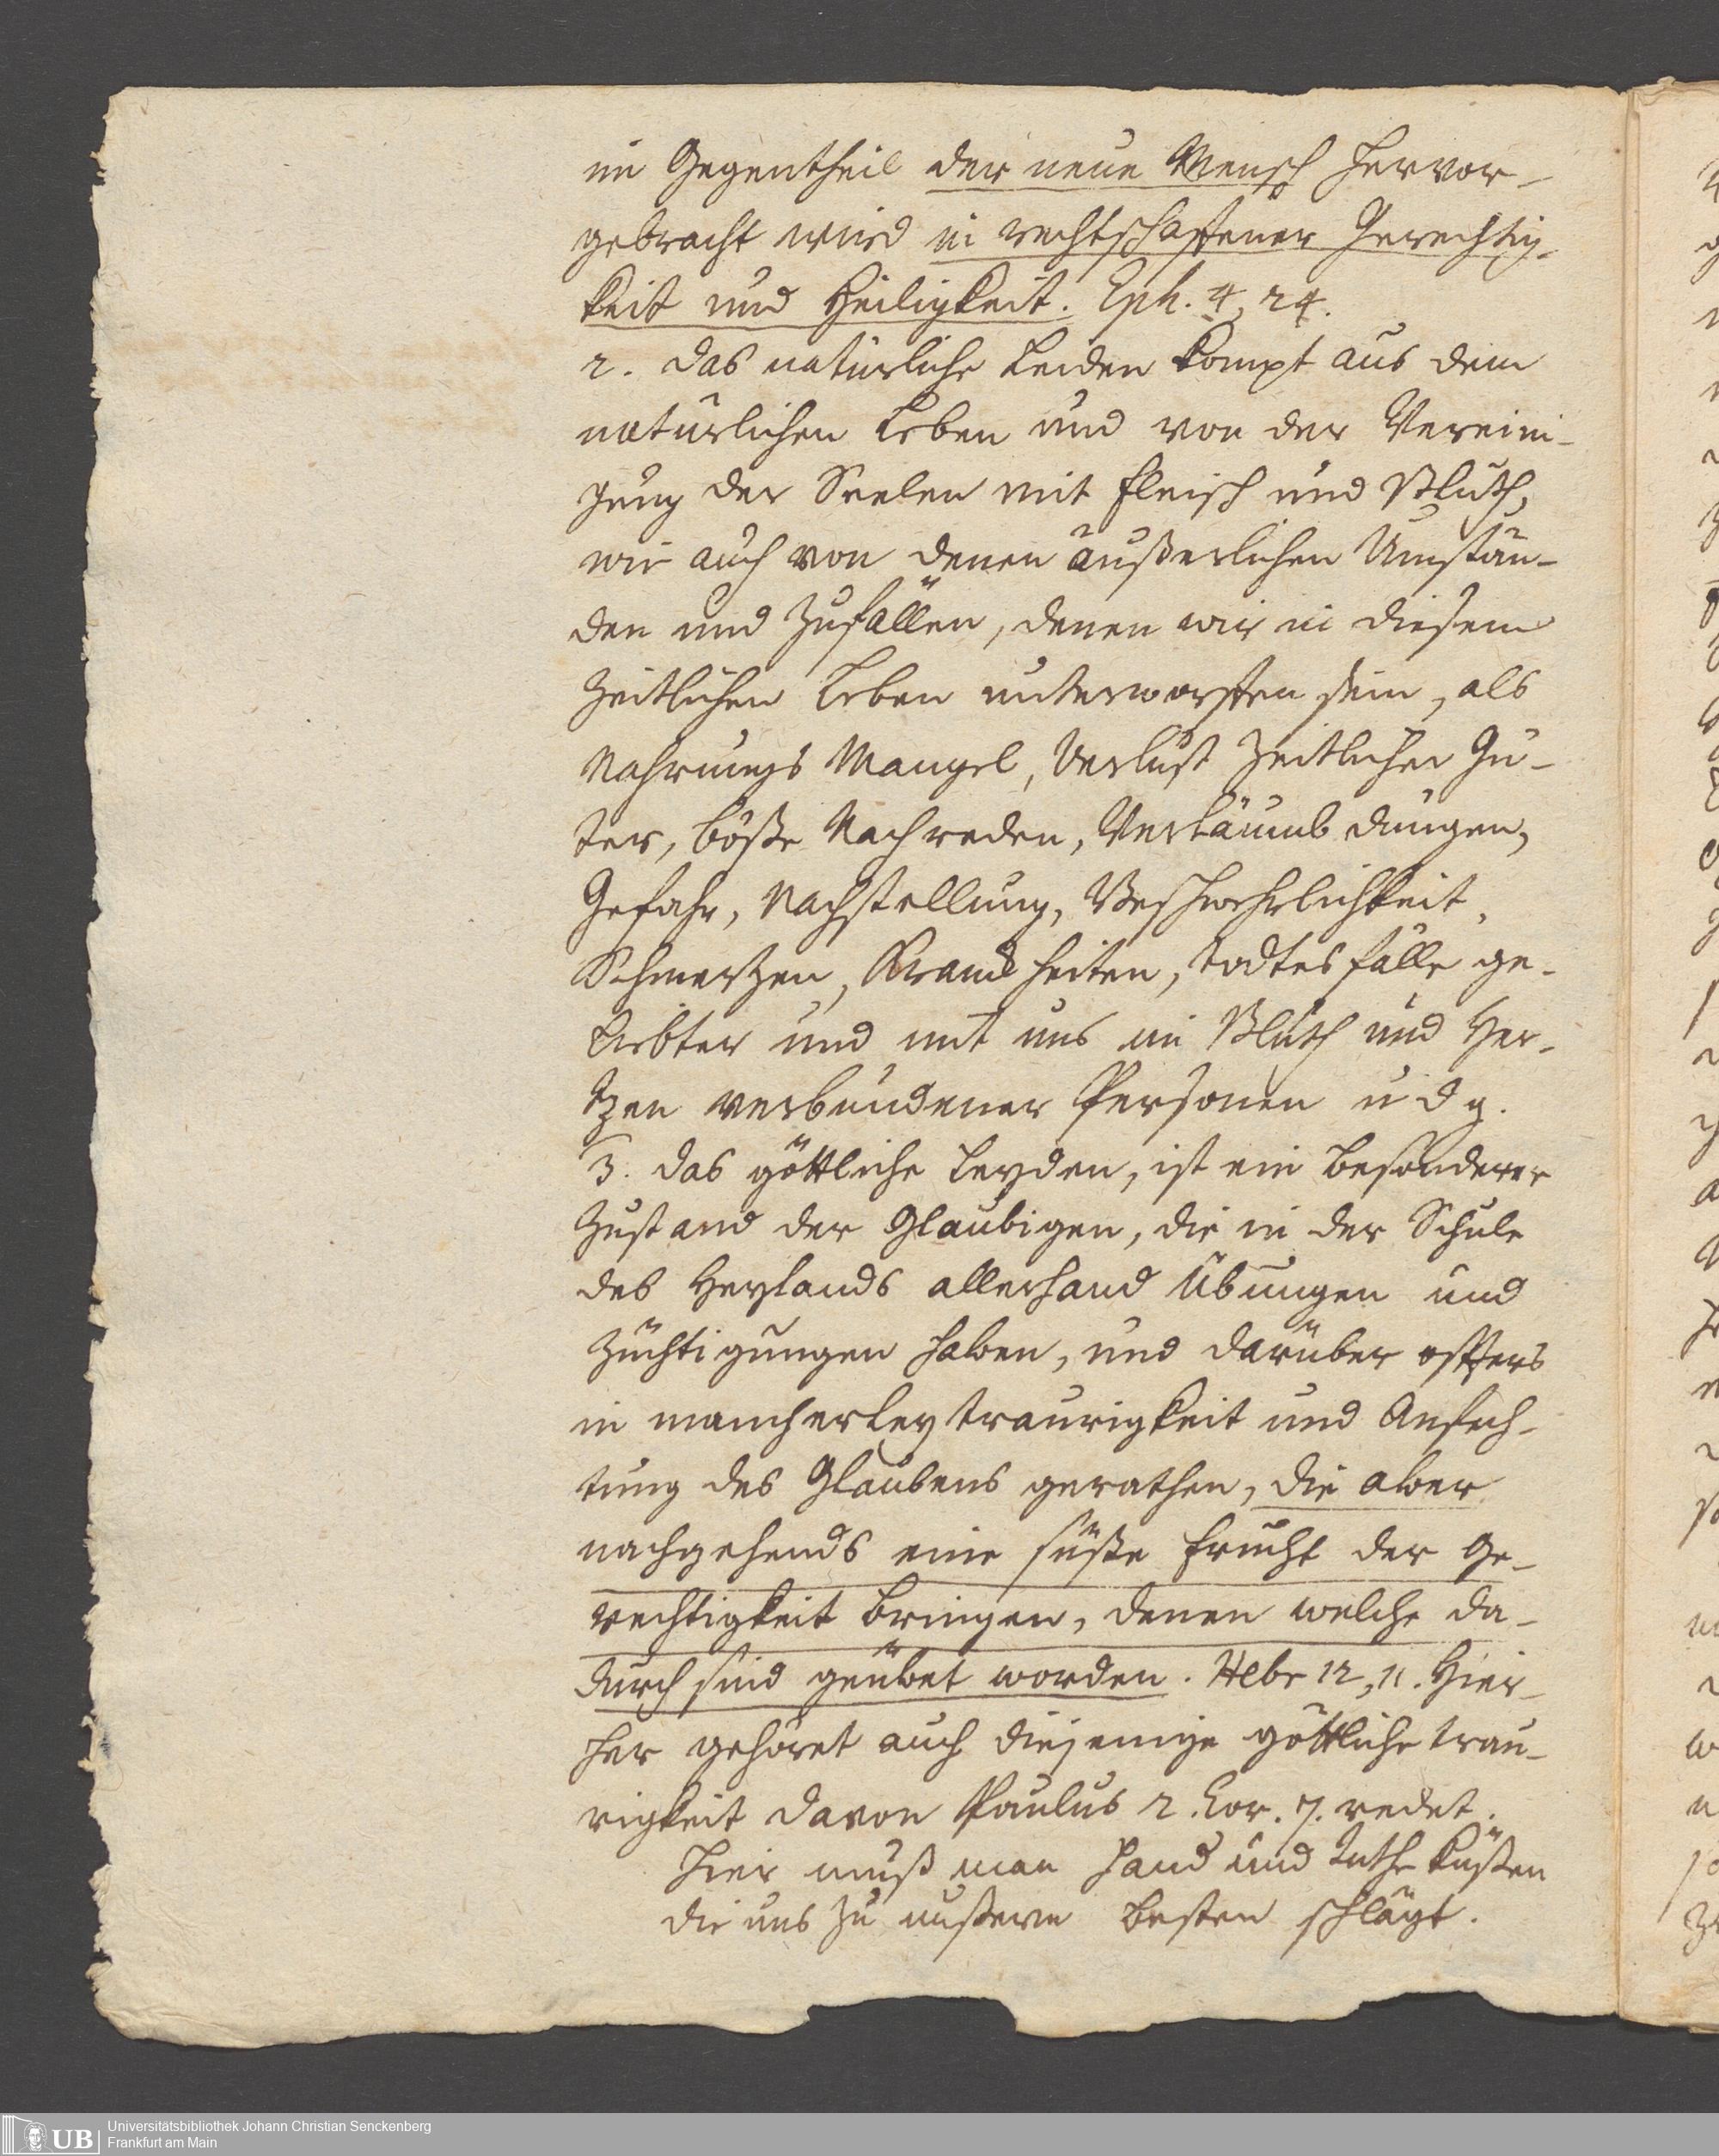 im Gegentheil der neue Mensch hervor-
gebracht wird in rechtschaffener Gerechtig-
keit und Heiligkeit. Eph. 4, 24.
2. das natürliche Leiden kompt aus dem
natürlichen Leben und von der Vereini-
gung der Seelen mit Fleisch und Bluth,
wie auch von denen äußerlichen Umstän-
den und Zufällen, denen wir in diesem
Zeitlichen Leben unterworffen sein, als
Nahrungs Mangel, Verlust Zeitlicher Gü-
ter, böße Nachreden, Verläumbdungen,
Gefahr, Nachstellung, Beschwehrlichkeit,
Schmertzen, Krankheiten, todtesfälle ge-
liebter und mit uns im Bluth und Her-
tzen verbundener Personen u d g.
3. das göttliche Leyden, ist ein besonderer
Zustand der Glaubigen, die in der Schule
des Heylands allerhand Übungen und
Züchtigungen haben, und darüber offters
in mancherley traurigkeit und Anfech-
tung des Glaubens gerathen, die aber
nachgehends eine süße Frucht der Ge-
rechtigkeit bringen, denen welche da-
durch sind geübet worden. Hebr 12, 11. Hier-
her gehöret auch diejenige göttliche trau-
rigkeit davon Paulus 2. Cor. 7. redet.
Hier muß man Hand und Ruthe küßen
die uns zu unßerm besten schlägt.
Universitätsbibliothek Johann Christian Senckenberg
UB Frankfurt am Main